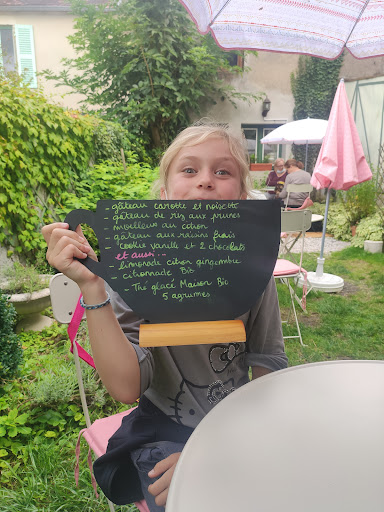 - gâteau carotte et noisette
- gâteau de riz aux prunes
moelleux au citron
gâteau aux raisins frais
- cookie vanille et 2 chocolats
et aussi...
- limonade citron gingembre
- citronnade Bio
- Thé glacé Maison Bio
5 agrumes